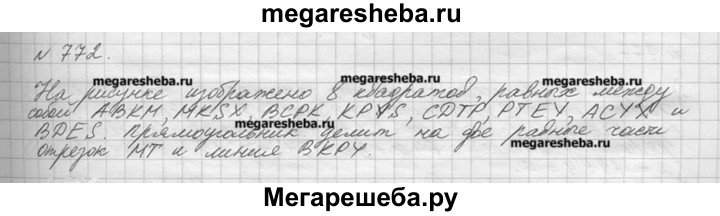 megaresheba.ru
N 772.
megaresheba.ru megaresheba.ru megaresheba.ru
На рисунке изображено 8 квадратов, равных между
собой ABKM, MKSX, BCPK, KPYS, CDTP, PTEY, ACYX и
BDES. Прямоугольник делит на две равные части
отрезок MT и линия BKPY.
megaresheba.ru megaresheba.ru megaresheba.ru
Мегарешеба.ру